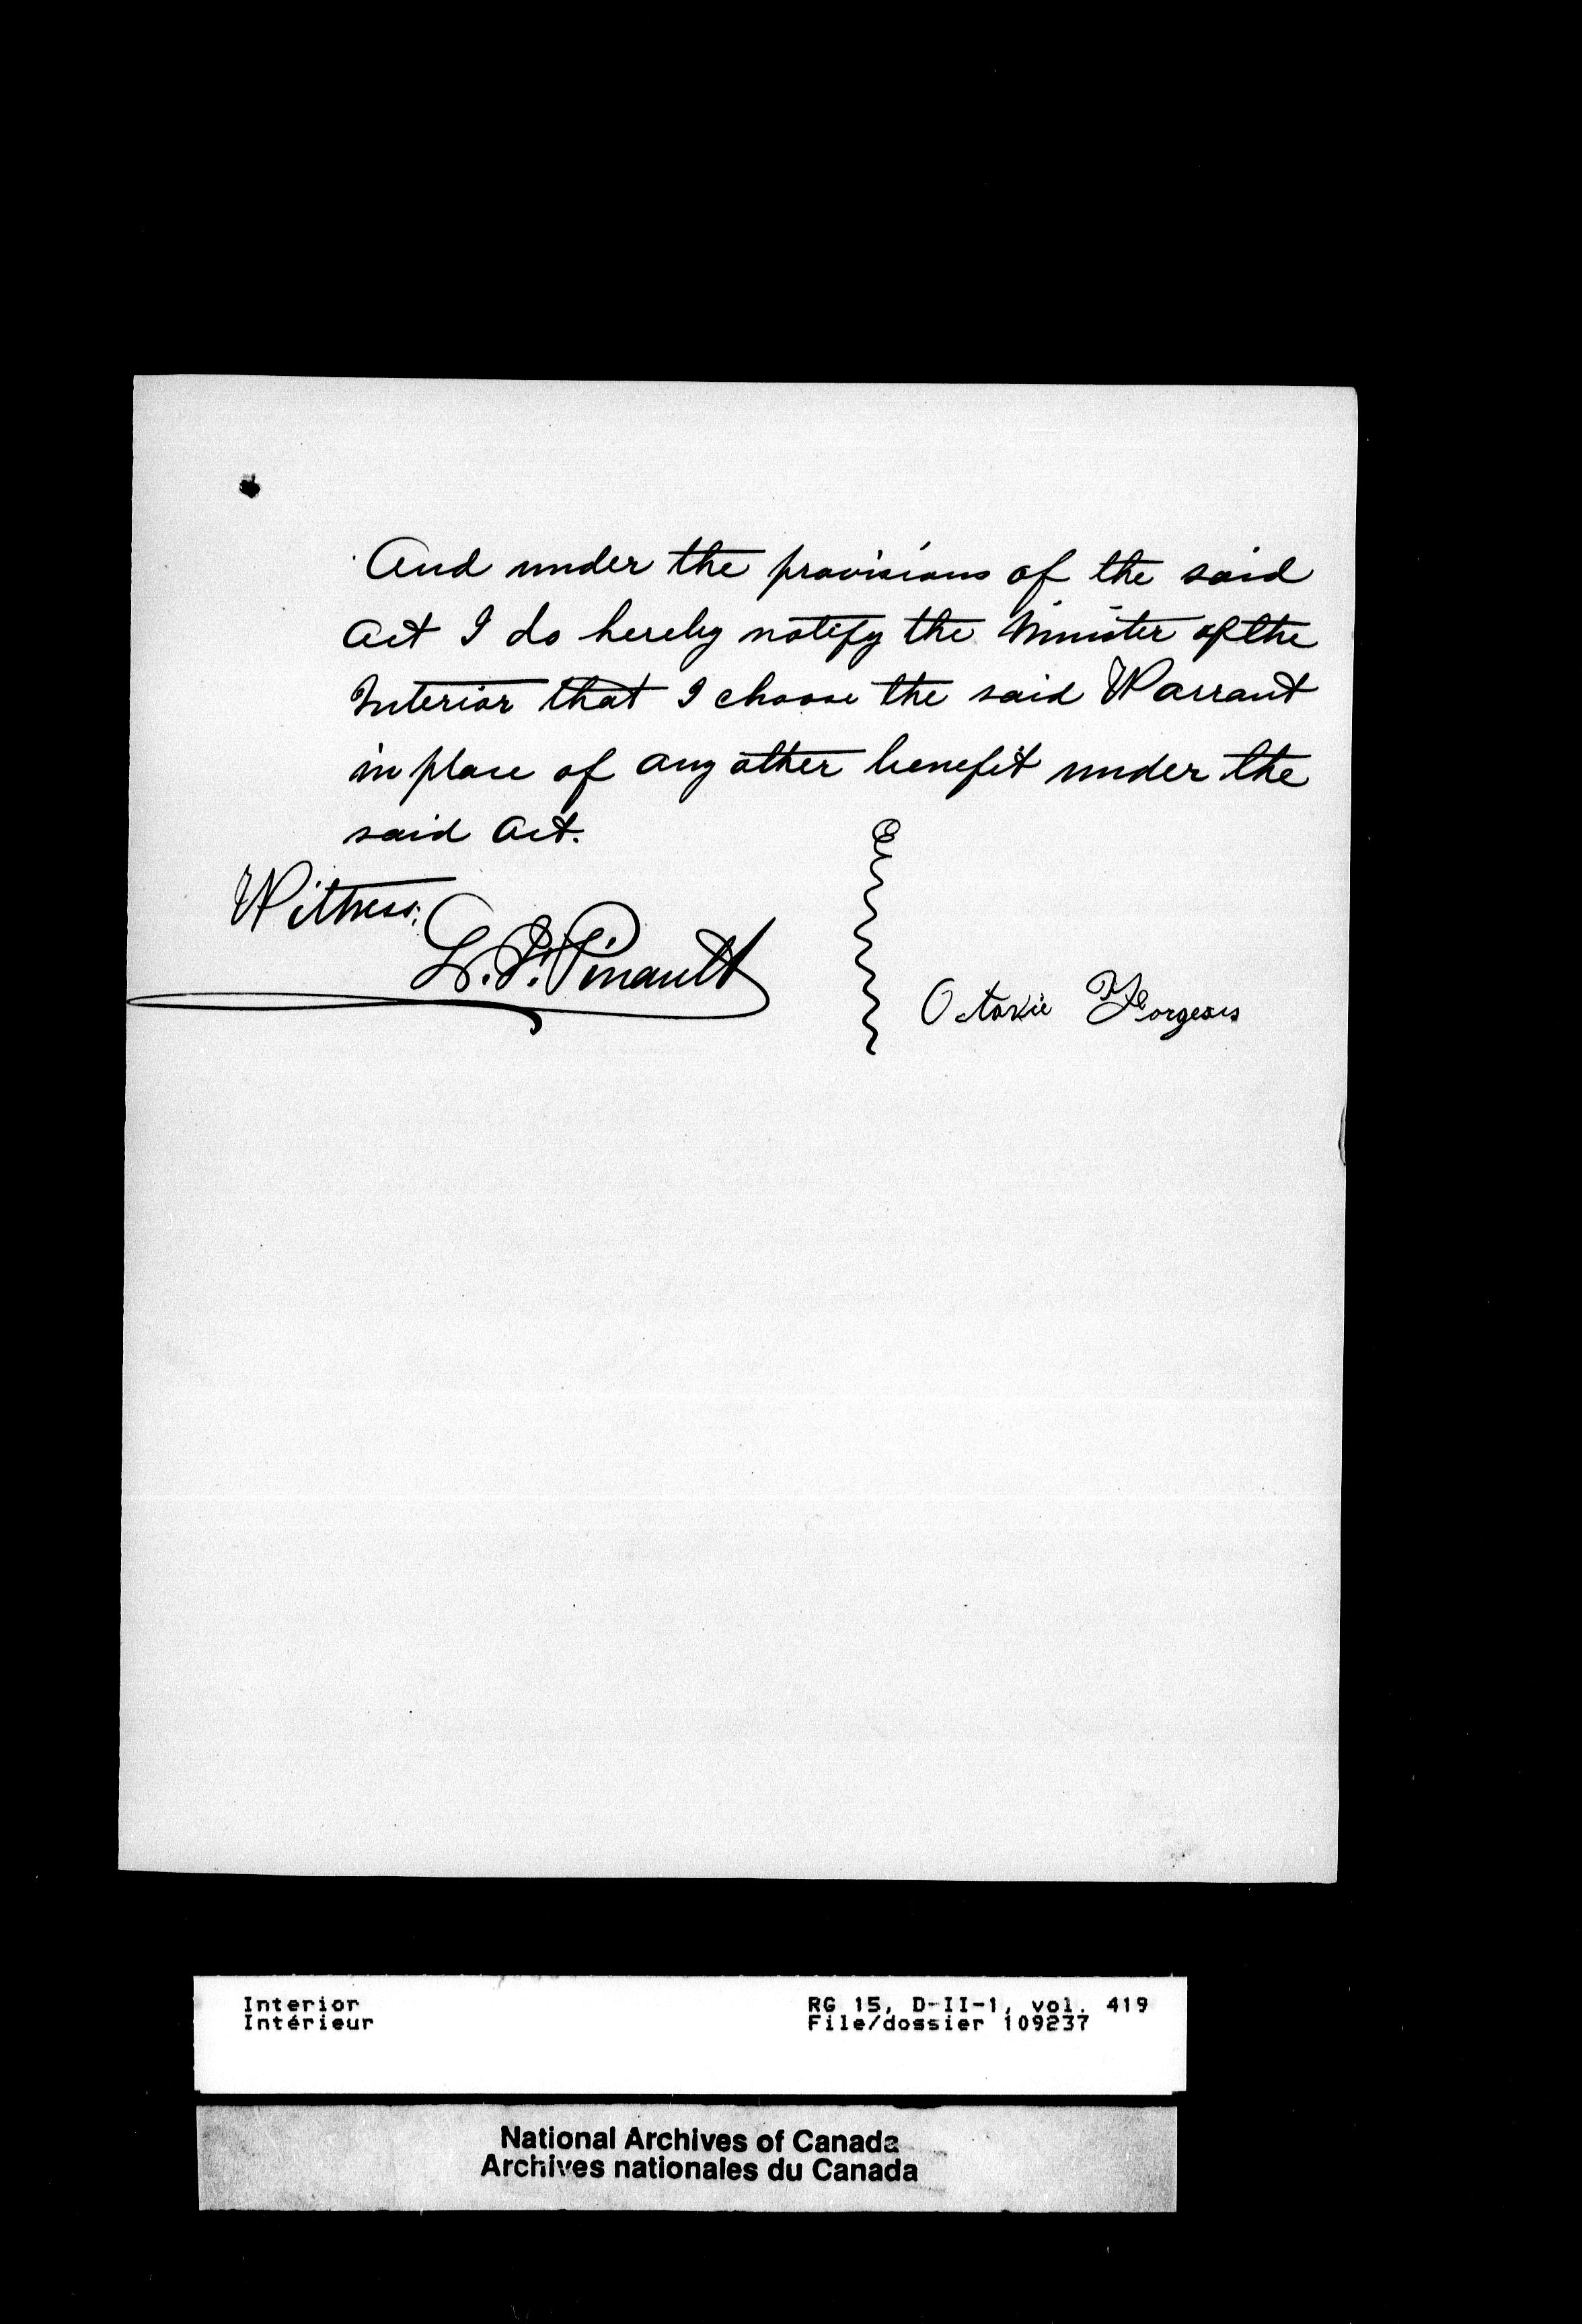 And under the provisions of the said
Act I do hereby notify the Minister of the
Interior that I choose the said Warrant
in place of any other benefit under the
said Act.
Witness:
L. P. Pinault
Octavie Forgeais
Interior
Intérieur
RG 15, D-II-1, vol. 419
File/dossier 109237
National Archives of Canada
Archives nationales du Canada